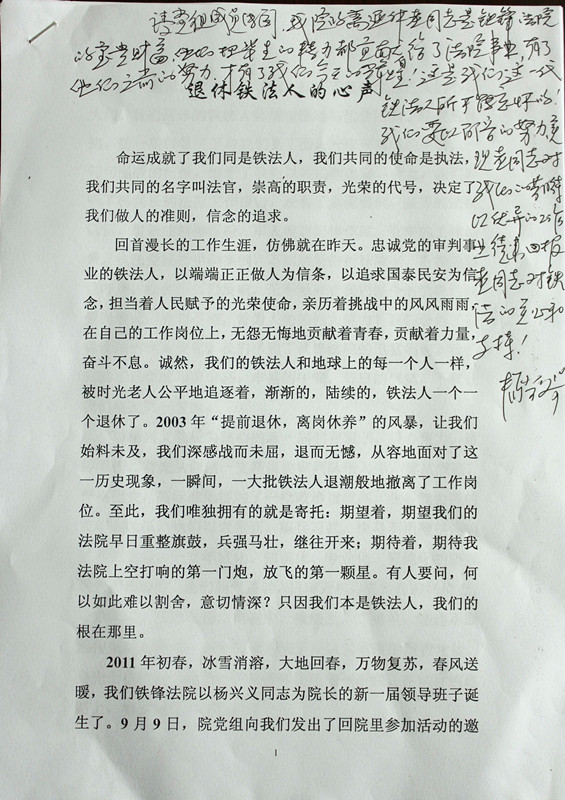 请党组成员传阅，我院的离退休老同志是铁锋法院
的宝贵财富，他们把毕生的精力都贡献给了法院事业，有了
他们之前的努力，才有了我们今天的辉煌！这是我们这一代
铁法人所不能忘怀的！
我们要以百倍的努力
老同志对
我们的
以优异的工作
业绩来回报
老同志对铁
法的关心和
支持！
退休铁法人的心声
命运成就了我们同是铁法人，我们共同的使命是执法，
我们共同的名字叫法官，崇高的职责，光荣的代号，决定了
我们做人的准则，信念的追求。
回首漫长的工作生涯，仿佛就在昨天。忠诚党的审判事
业的铁法人，以端端正正做人为信条，以追求国泰民安为信
念，担当着人民赋予的光荣使命，亲历着挑战中的风风雨雨，
在自己的工作岗位上，无怨无悔地贡献着青春，贡献着力量，
奋斗不息。诚然，我们的铁法人和地球上的每一个人一样，
被时光老人公平地追逐着，渐渐的，陆续的，铁法人一个一
个退休了。2003 年“提前退休，离岗休养”的风暴，让我们
始料未及，我们深感战而未屈，退而无憾，从容地面对了这
一历史现象，一瞬间，一大批铁法人退潮般地撤离了工作岗
位。至此，我们唯独拥有的就是寄托：期望着，期望我们的
法院早日重整旗鼓，兵强马壮，继往开来；期待着，期待我
法院上空打响的第一门炮，放飞的第一颗星。有人要问，何
以如此难以割舍，意切情深？只因我们本是铁法人，我们的
根在那里。
2011 年初春，冰雪消溶，大地回春，万物复苏，春风送
暖，我们铁锋法院以杨兴义同志为院长的新一届领导班子诞
生了。9 月 9 日，院党组向我们发出了回院里参加活动的邀
1